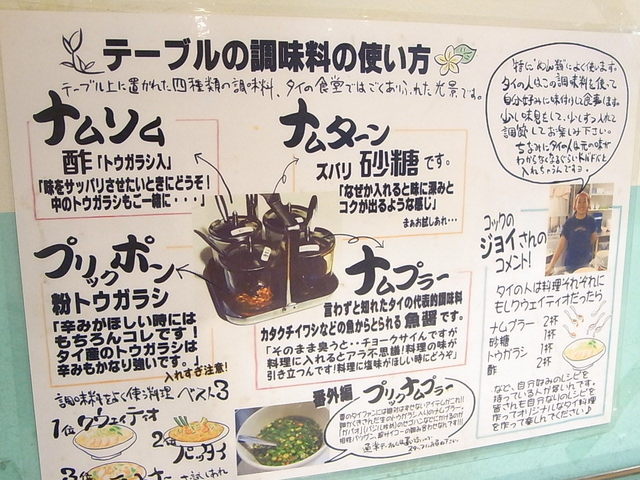 テーブルの調味料の使い方
テーブル上に置かれた四種類の調味料、タイの食堂ではごくありふれた光景です。
ナムソム
酢「トウガラシ入」
「味をサッパリさせたいときにどうぞ!
中のトウガラシもご一緒に・・・」
ナムターン
ズバリ 砂糖 です。
「なぜか入れると味に深みと
コクが出るような感じ」
まぁお試しあれ・・・
プリックポーン
粉トウガラシ
「辛みがほしい時には
もちろんコレです!
タイ産のトウガラシは
辛みもかなり強いです。」
入れすぎ注意!
ナムプラー
言わずと知れたタイの代表的調味料
カタクチイワシなどの魚からとられる 魚醤 です。
「そのまま臭うと・・チョークサイんですが
料理に入れるとアラ不思議!料理の味が
引き立つんです!料理に塩味がほしい時にどうぞ」
"特に"めん類"によく使います。
タイの人はこの調味料を使って
自分好みに味付けし食事します。
少し味見をして、少しずつ入れて
調節してお楽しみ下さい。
ちなみにタイの人は元の味が
わからなくなるぐらいドバドバと
入れちゃうんですョ。
コックの
ジョイさんの
コメント!
タイの人は料理それぞれに
もしクウェイティオだったら
ナムプラー 2杯
砂糖 1杯
トウガラシ 1杯
酢 2杯
など、自分好みのレシピを
持っている人が多いんです。
皆さんも自分なりのレシピを
作ってオリジナルなタイ料理
を作って楽しんでください♪
調味料をよく使う料理 ベスト3
1位 クウェイティオ
2位 パッタイ
3位
番外編 プリックナムプラー